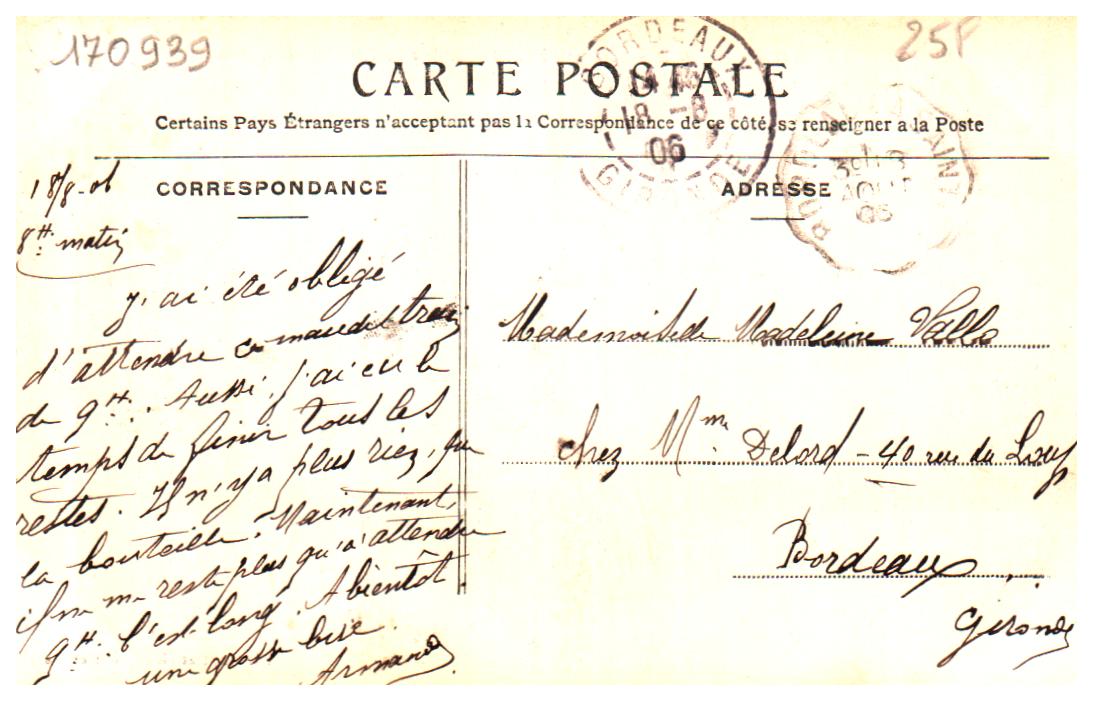 170939
25F
CARTE POSTALE
Certains Pays Étrangers n'acceptant pas la Correspondance de ce côté, se renseigner a la Poste
BORDEAUX
18 -8
06
GIRONDE
AOUT
06
CORRESPONDANCE
ADRESSE
18/8-06
8H matin
J'ai été obligé
d'attendre ce maudit train
de 9H. Aussi, j'ai eu le
temps de finir tous les
restes. Il n'y a plus rien, que
la bouteille. Maintenant,
il ne me reste plus qu'à attendre
9H. C'est long. A bientôt
une grosse bise.
Armand
Mademoiselle Madeleine Valls
chez Mme Delord - 40 rue du Loup
Bordeaux
Gironde